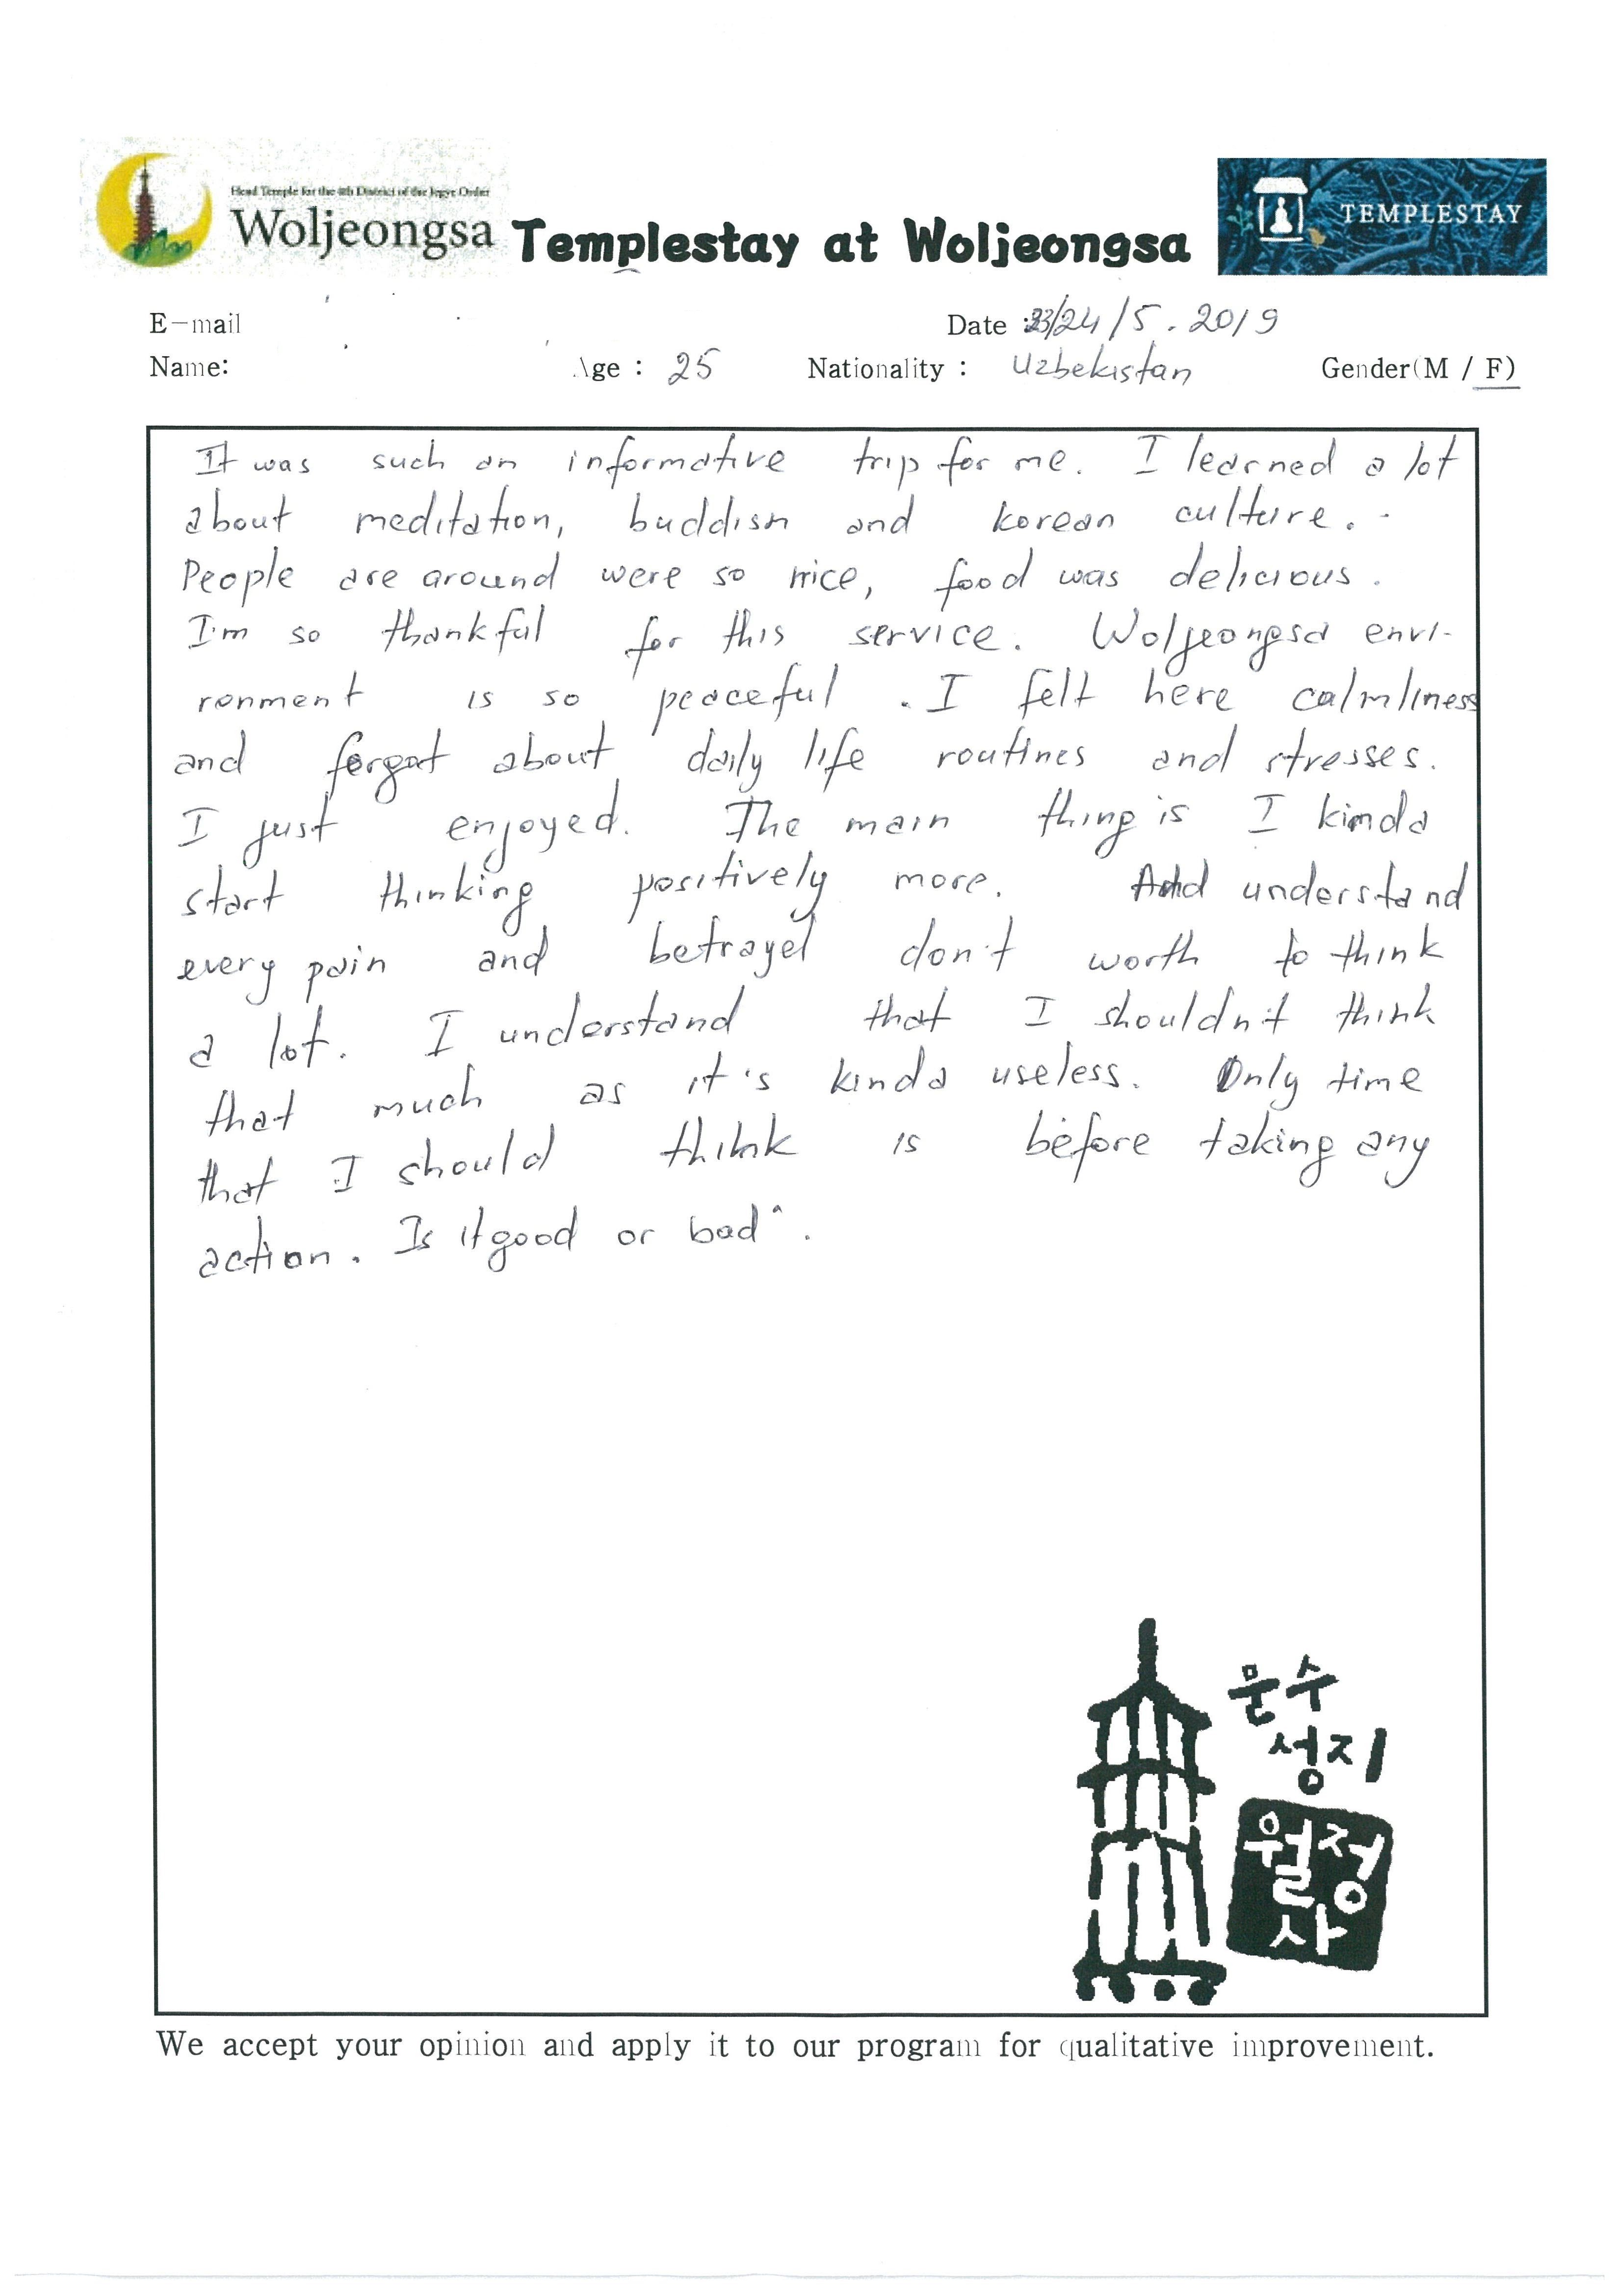 Head Temple for the 4th District of the Jogye Order
Woljeongsa
Templestay at Woljeongsa
TEMPLESTAY
E-mail
Date : 23/24/5.2019
Name:
Age : 25
Nationality : Uzbekistan
Gender(M / F)
It was such an informative trip for me. I learned a lot
about meditation, buddism and korean culture.
People are around were so nice, food was delicious.
I'm so thankful for this service. Woljeongsa envi-
ronment is so peaceful. I felt here calmliness
and forgot about daily life routines and stresses.
I just enjoyed. The main thing is I kinda
start thinking positively more. And understand
every pain and betrayel don't worth to think
a lot. I understand that I shouldn't think
that much as it's kinda useless. Only time
that I should think is before taking any
action. Is it good or bad^.
문수
성지
월정
사
We accept your opinion and apply it to our program for qualitative improvement.